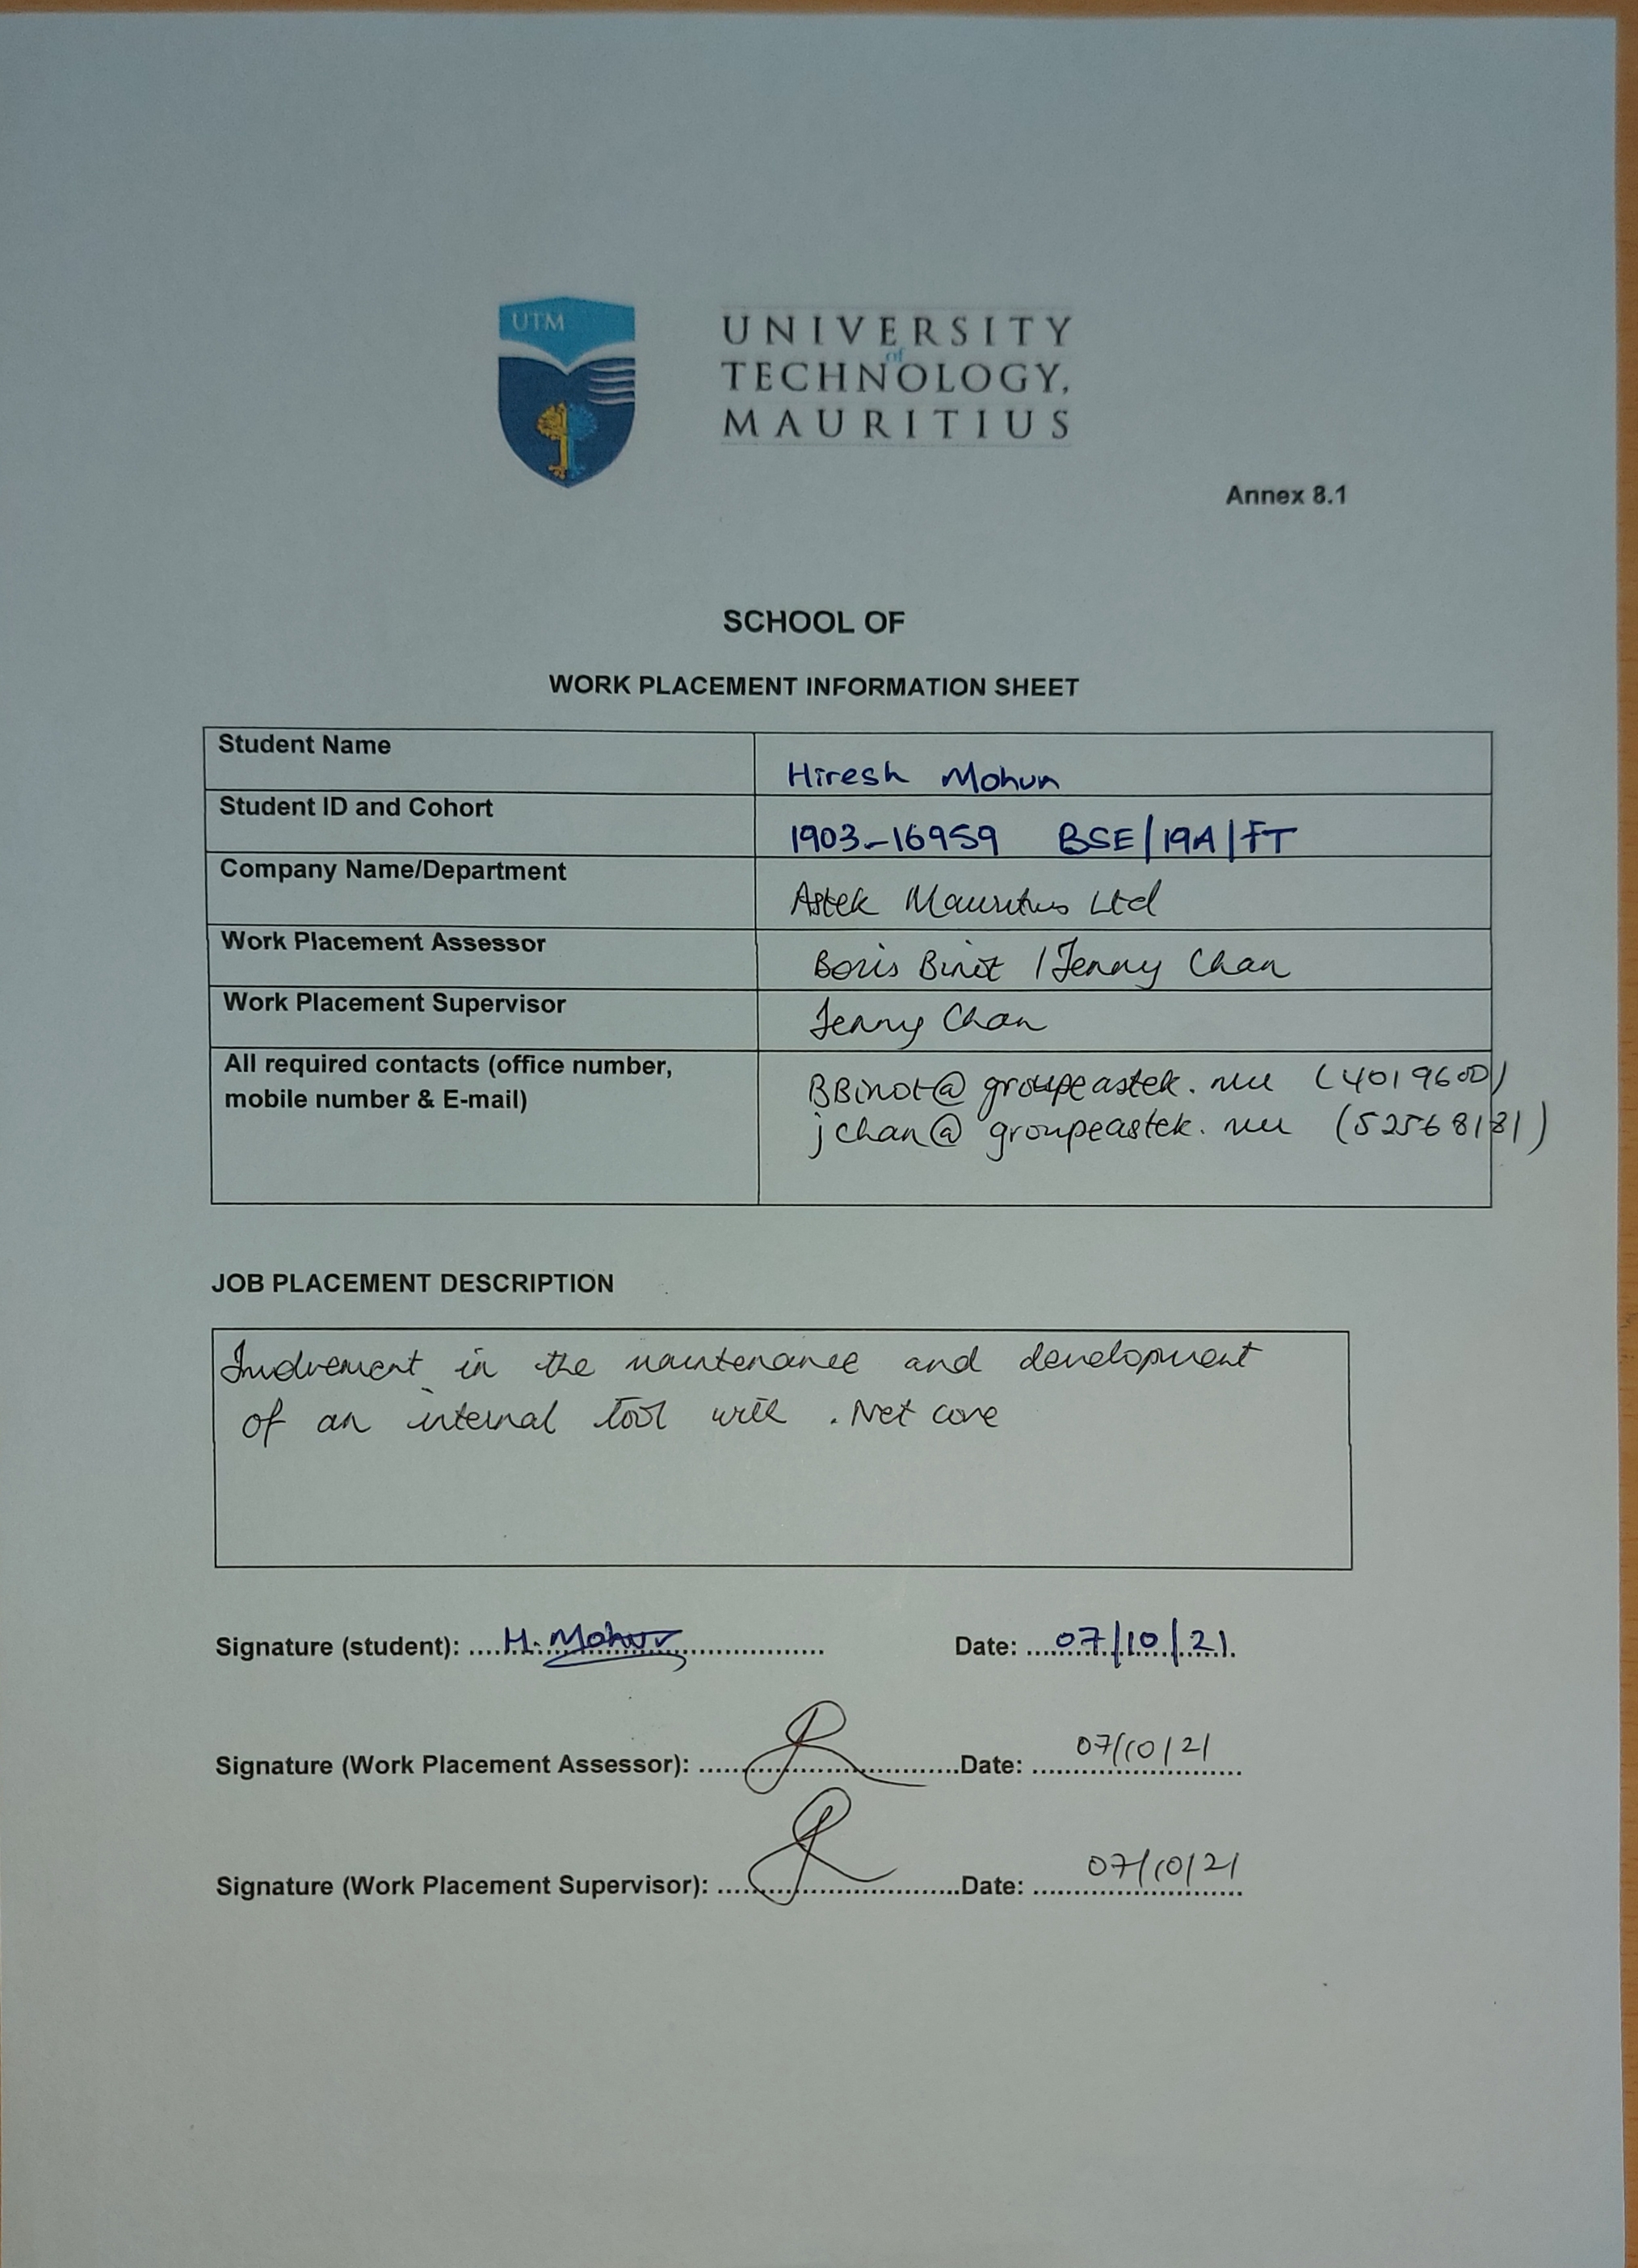 UTM
UNIVERSITY
of
TECHNOLOGY,
MAURITIUS
Annex 8.1
SCHOOL OF
WORK PLACEMENT INFORMATION SHEET
Student Name Hiresh Mohun
Student ID and Cohort 1903-16959 BSE/19A/FT
Company Name/Department Astek Mauritius Ltd
Work Placement Assessor Boris Binot / Jenny Chan
Work Placement Supervisor Jenny Chan
All required contacts (office number, BBinot@groupeastek.mu (4019600)
mobile number & E-mail) jchan@groupeastek.mu (52568181)
JOB PLACEMENT DESCRIPTION
Involvement in the maintenance and development
of an internal tool with .Net core
Signature (student): H. Mohun Date: 07/10/21
Signature (Work Placement Assessor): Date: 07/10/21
Signature (Work Placement Supervisor): Date: 07/10/21